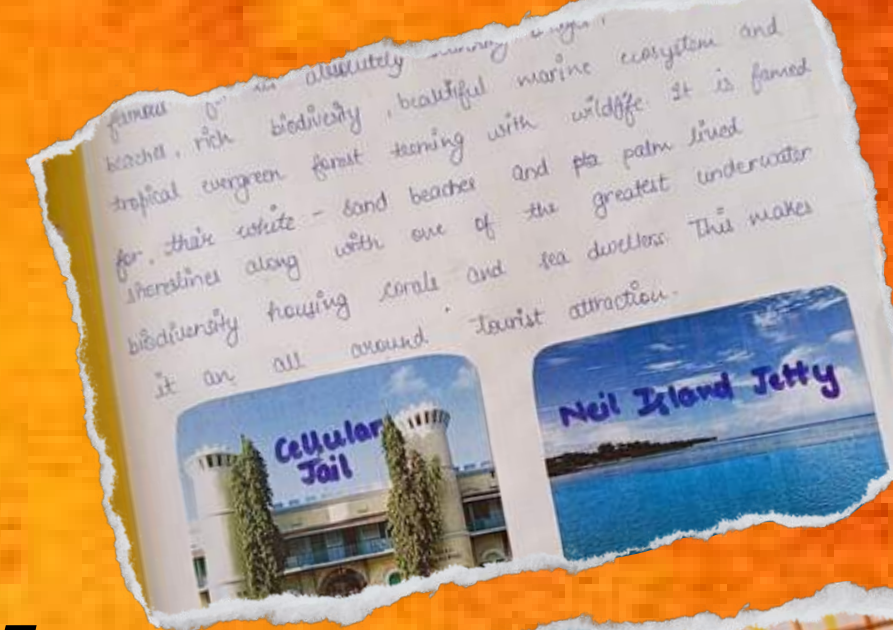 famous absolutely
beaches, rich biodiversity, beautiful marine ecosystem and
tropical evergreen forest teeming with wildlife. It is famed
for, their white - sand beaches and palm lined
shorelines along with one of the greatest underwater
biodiversity housing corals and sea dwellers. This makes
it an all around tourist attraction.
Cellular
Jail
Neil Island Jetty